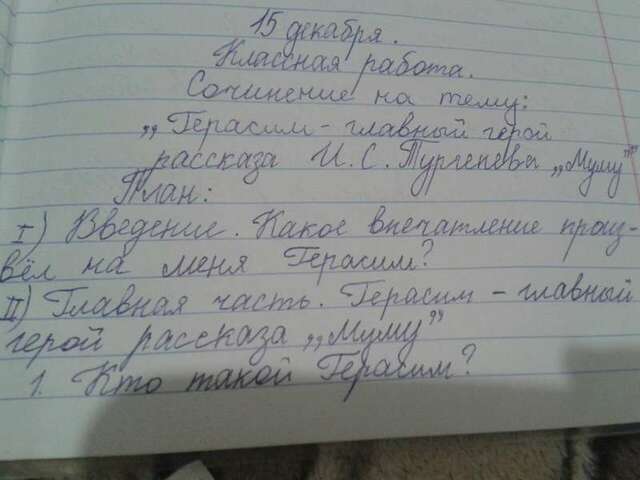 15 декабря.
Классная работа.
Сочинение на тему:
„Герасим - главный герой
рассказа И. С. Тургенева „Муму"
План:
I) Введение. Какое впечатление произ-
вёл на меня Герасим?
II) Главная часть. Герасим - главный
герой рассказа „Муму"
1. Кто такой Герасим?